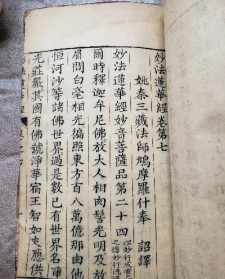 妙法蓮華經卷第七
姚秦三藏法師鳩摩羅什奉 詔譯
妙法蓮華經妙音菩薩品第二十四
爾時釋迦牟尼佛放大人相肉髻光明及放
眉間白毫相光徧照東方百八萬億那由他
恒河沙等諸佛世界過是數已有世界名淨
光莊嚴其國有佛號淨華宿王智如來應供